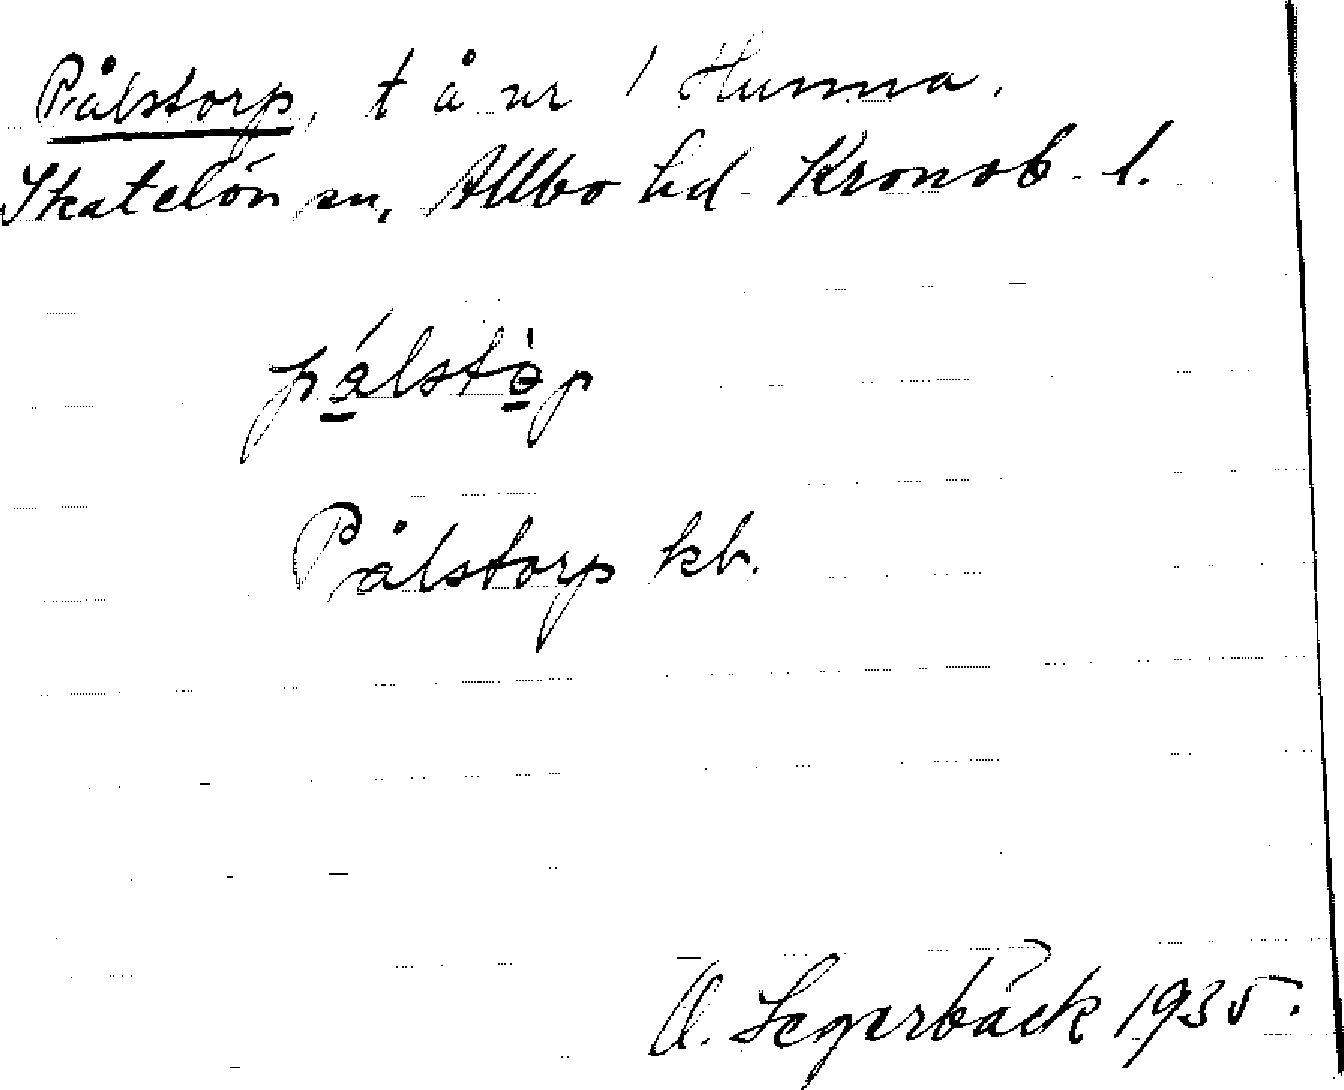 Pålstorp, t å nr 1 Hunna.
Skatelöv sn, Allbo hd Kronob. l.
pålstòp
Pålstorp kb.
O. Segerbäck 1935.